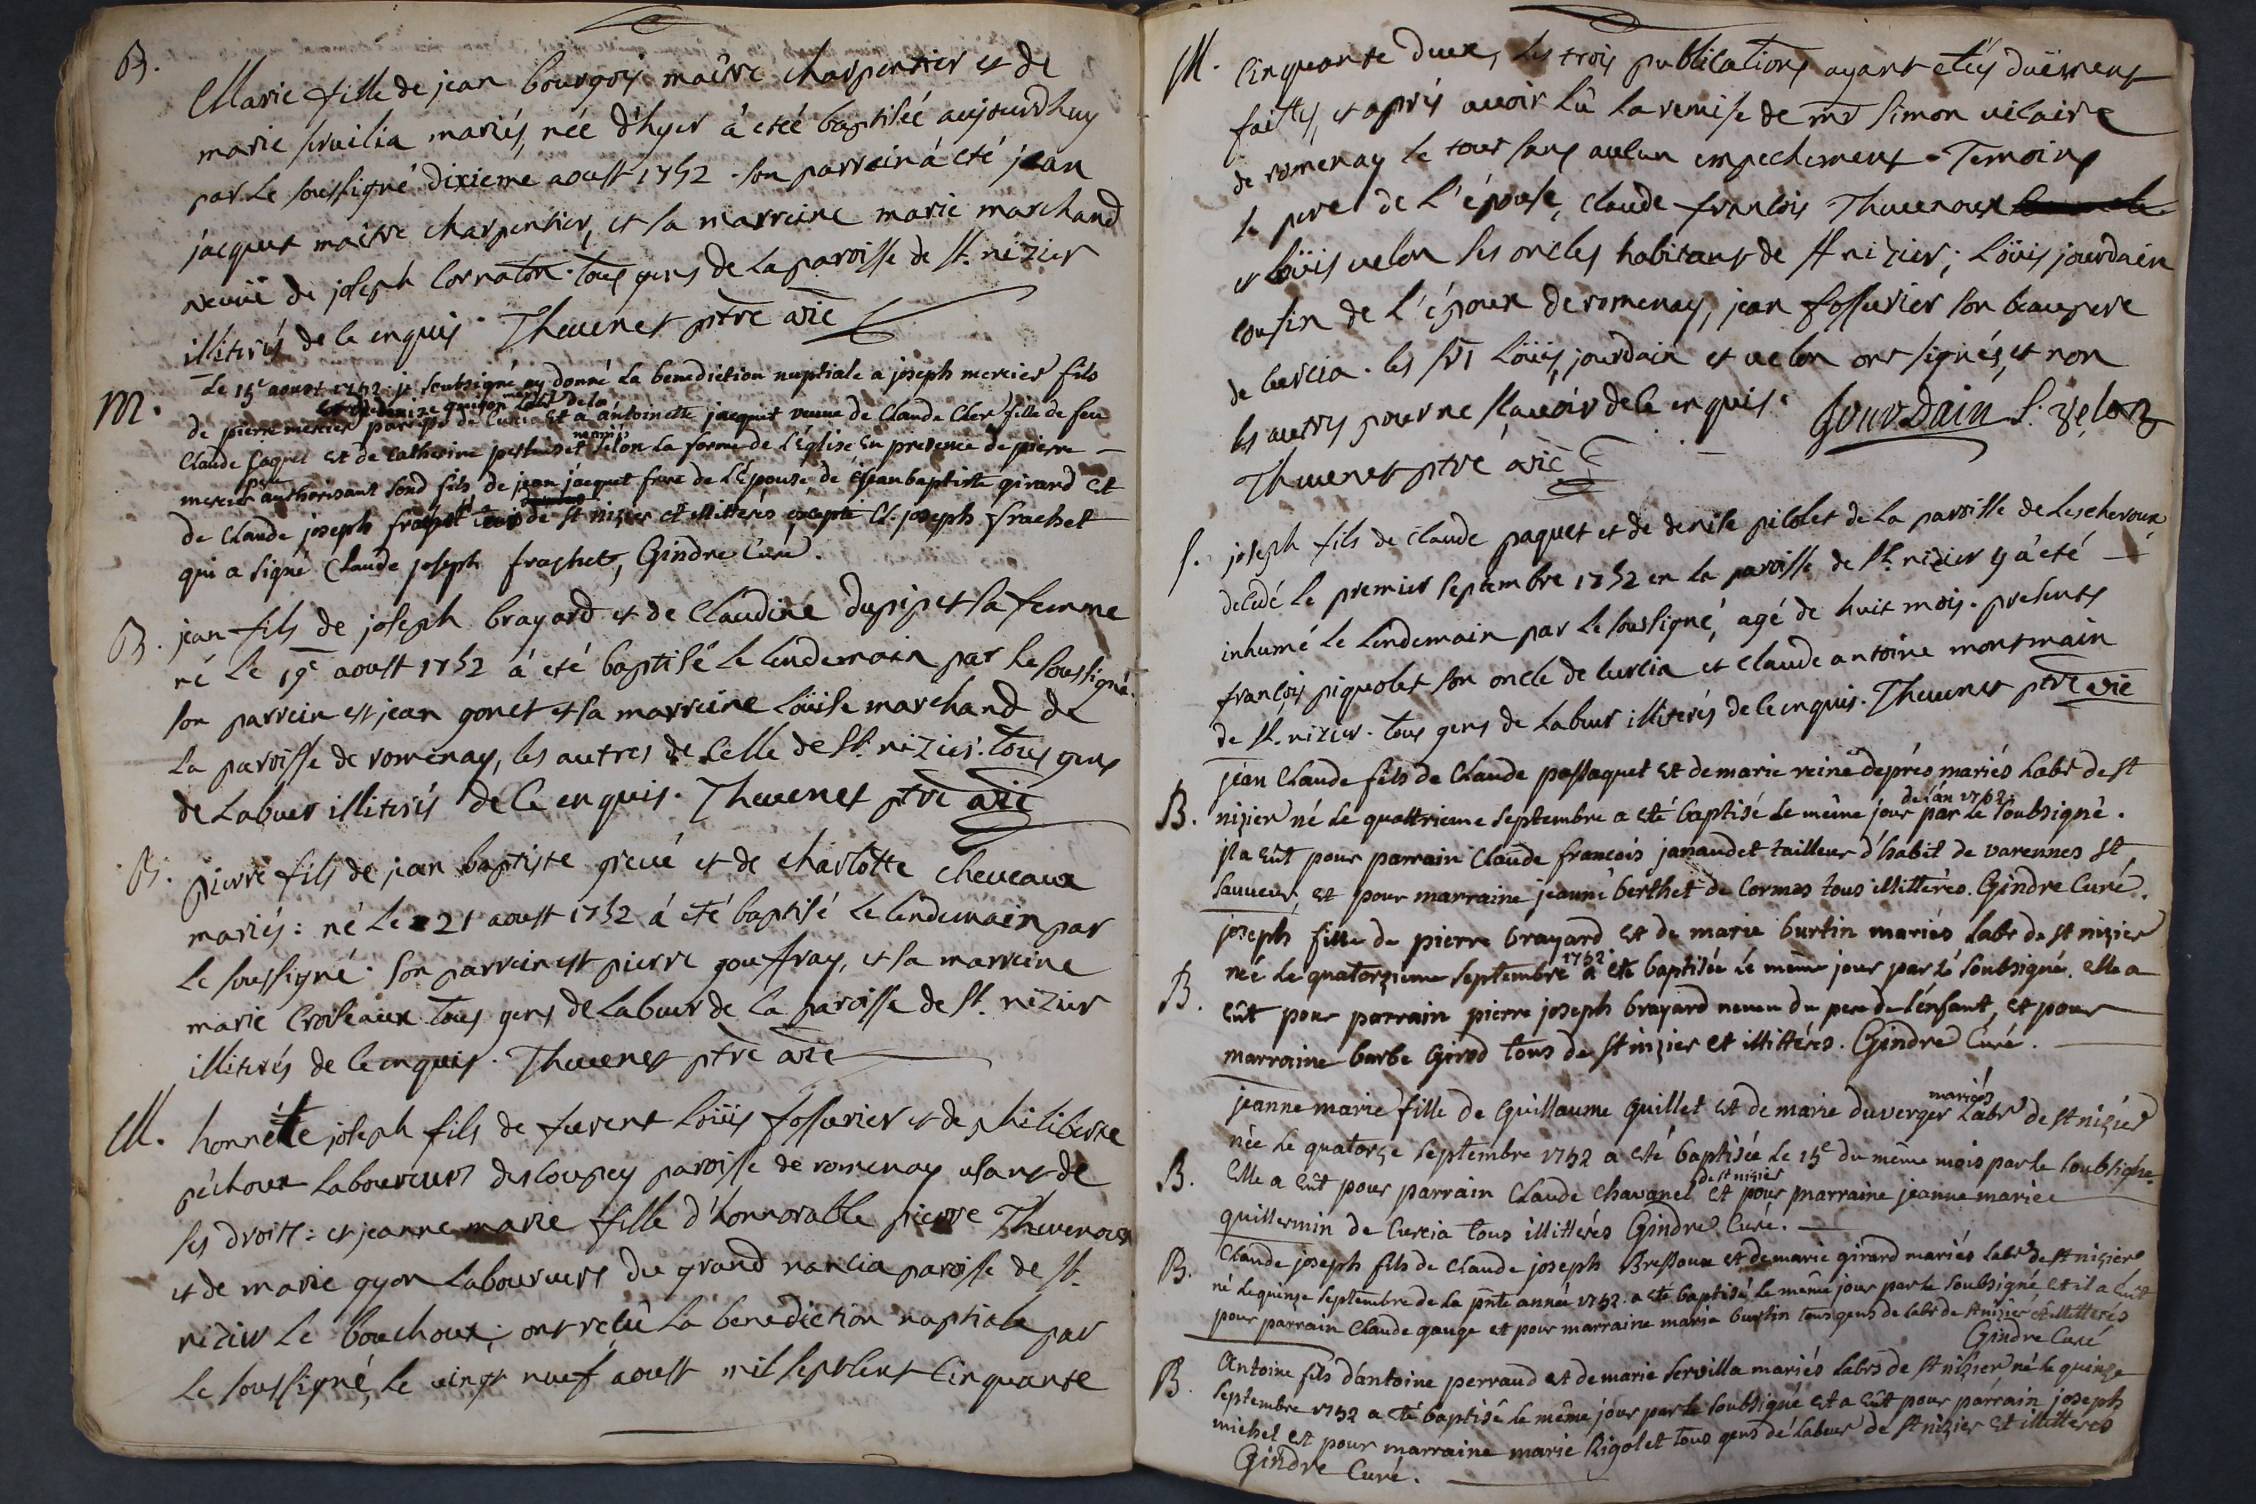 B.
Marie fille de jean bourgois maître charpentier et de
marie seruilia mariés, née d'hyer á eteé baptiseé aujourdhuy
par le soussigné dixieme aoust 1752. son parrein á eté jean
jacquet maître charpentier, et sa marreine marie marchand
veuue de joseph Cornaton. tous gens de la paroisse de st. nizier
illiterés de ce enquis. Theuenet ptre vic
M.
Le 15e aoust 1752. je soubsigné ay donné la benediction nuptiale a joseph mercier fils
de pierre mercier et de denize guigon mariés labrs de la
paroisse de Curcia et a antoinette jacquet veuue de Claude Cler fille de feu
Claude jaquet et de Catherine mariés selon la forme de l'Eglise En presence de pierre
mercier pere authorisant sond fils de jean jacquet frere de l'Epouse de jean baptiste girard et
de Claude joseph frachet tous de st nizier et illitterés excepté Cl. joseph frachet
qui a signé Claude joseph frachet, Gindre Curé.
B. jean fils de joseph brayard et de Claudine dupipet sa femme
né le 19e aoust 1752 á eté baptisé le lendemain par le soussigné.
son parrein est jean gonet et sa marreine Loüise marchand de
la paroisse de romenay, les autres de Celle de st. nizier. tous gens
de Labuer illiterés de Ce enquis. Theuenet ptre vic
B. pierre fils de jean baptiste greué et de charlotte cheueaux
mariés: né le 21 aoust 1752 á eté baptisé le lendemain par
le soussigné. son parrein est pierre gouffray, et sa marreine
marie Croiseaux tous gens de Labuer de la paroisse de st. nizier
illiterés de Ce enquis. Theuenet ptre vic
M. honnête joseph fils de fuerent Loüis fossurier et de philiberte
péchoux Laboureurs des Coupey paroisse de romenay usant de
ses droits: et jeanne marie fille d'honnorable pierre Theuenoux
et de marie gyon Laboureurs du grand nancia paroisse de st.
nizier le bouchoux; ont reçu la benediction nuptiale par
le soussigné, le vingt neuf aoust mil sept Cent Cinquante
M. Cinquante deux, les trois publications ayant etés duëment
faittes, et aprés auoir lû la remise de mr Simon vicaire
de romenay le tout sans aucun empechement. Temoins
le pere de l'épouse, Claude françois Theuenoux
et Loüis velon ses oncles habitant de st nizier; Loüis jourdain
cousin de l'époux de romenay, jean fossurier son beaupere
de Curcia. les srs Loüis, jourdain et velon ont signés, et non
les autres pour ne sçauoir de Ce enquis.
Jourdain L: velon
Theuenet ptre vic
S. joseph fils de Claude paquet et de denise picolet de la paroisse de Lescheroux
decedé le premier septembre 1752 en la paroisse de st. nizier y á eté
inhumé le lendemain par le soussigné, agé de huit mois. presents
françois piquolet son oncle de Curcia et Claude antoine montmain
de st. nizier. tous gens de labeur illiterés de Ce enquis. Theuenet ptre vic
jean Claude fils de Claude passaquet et de marie reine deprés mariés labrs de st
B. nizier né le quattrieme septembre de l'an 1752 a eté baptisé le même jour par le soubsigné.
jl a eût pour parrain Claude francois janaudet tailleur d'habit de varennes st
sauueur, et pour marraine jeanne berthet de Cormos tous illitterés. Gindre Curé.
joseph fille de pierre brayard et de marie burtin mariés labrs de st nizier
B. neé le quatorzieme septembre 1752 a eté baptisée le même jour par le soubsigné. elle a
eût pour parrain pierre joseph brayard neueu du pere de l'enfant, et pour
marraine barbe Girod tous de st nizier et illitterés. Gindre Curé.
jeanne marie fille de Guillaume Guillet et de marie duverger mariés labrs de st nizier
née le quatorze septembre 1752 a eté baptisée le 15e du même mois par le soubsigné.
B. Elle a eût pour parrain Claude Chavanel de st nizier et pour marraine jeanne mariee
guillermin de Curcia tous illitterés Gindre Curé.
B. Claude joseph fils de Claude joseph Bressoux et de marie girard mariés labrs de st nizier
né le quinze septembre de la pnte année 1752. a eté baptisé le même jour par le soubsigné et il a eut
pour parrain Claude gauge et pour marraine marie burtin tous gens de labr de st nizier et illitterés
Gindre Curé
B. Antoine fils d'antoine perraud et de marie servilla mariés labrs de st nizier né le quinze
septembre 1752 a eté baptisé le même jour par le soubsigné et a eût pour parrain joseph
michel et pour marraine marie Rigolet tous gens de labeur de st nizier et illitterés
Gindre Curé.